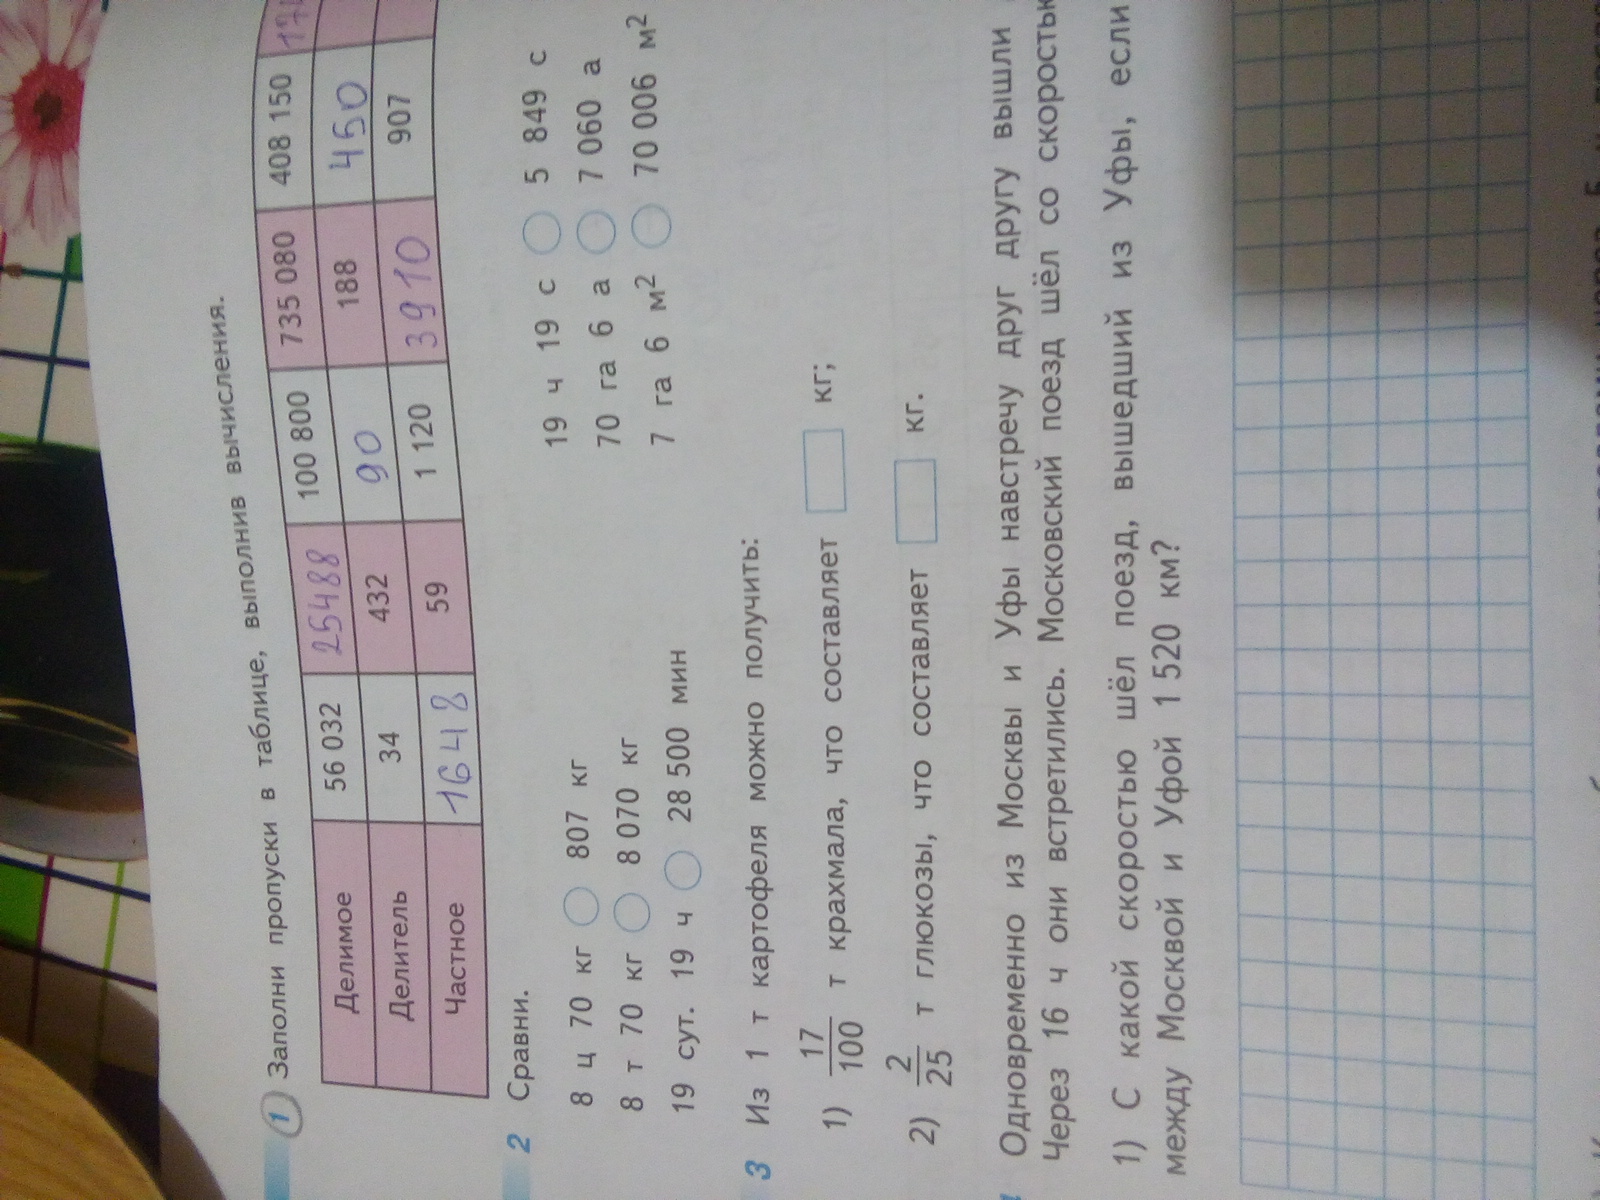 1 Заполни пропуски в таблице, выполнив вычисления.
Делимое 56 032 25488 100 800 735 080 408 150
Делитель 34 432 90 188 450
Частное 1648 59 1 120 3910 907
2 Сравни.
8 ц 70 кг 807 кг 19 ч 19 с 5 849 с
8 т 70 кг 8 070 кг 70 га 6 а 7 060 а
19 сут. 19 ч 28 500 мин 7 га 6 м² 70 006 м²
3 Из 1 т картофеля можно получить:
1) 17/100 т крахмала, что составляет кг;
2) 2/25 т глюкозы, что составляет кг.
Одновременно из Москвы и Уфы навстречу друг другу вышли
Через 16 ч они встретились. Московский поезд шёл со скоростью
1) С какой скоростью шёл поезд, вышедший из Уфы, если
между Москвой и Уфой 1 520 км?